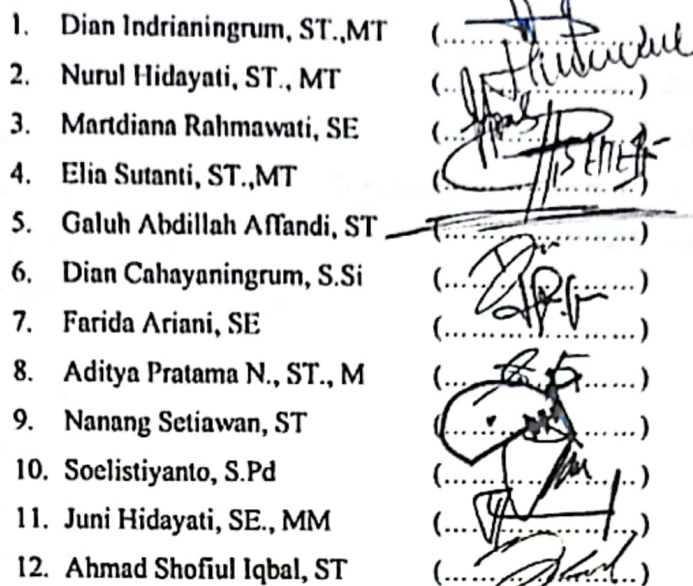 1. Dian Indrianingrum, ST.,MT (....................)
2. Nurul Hidayati, ST., MT (....................)
3. Martdiana Rahmawati, SE (....................)
4. Elia Sutanti, ST.,MT (....................)
5. Galuh Abdillah Affandi, ST (....................)
6. Dian Cahayaningrum, S.Si (....................)
7. Farida Ariani, SE (....................)
8. Aditya Pratama N., ST., M (....................)
9. Nanang Setiawan, ST (....................)
10. Soelistiyanto, S.Pd (....................)
11. Juni Hidayati, SE., MM (....................)
12. Ahmad Shofiul Iqbal, ST (....................)